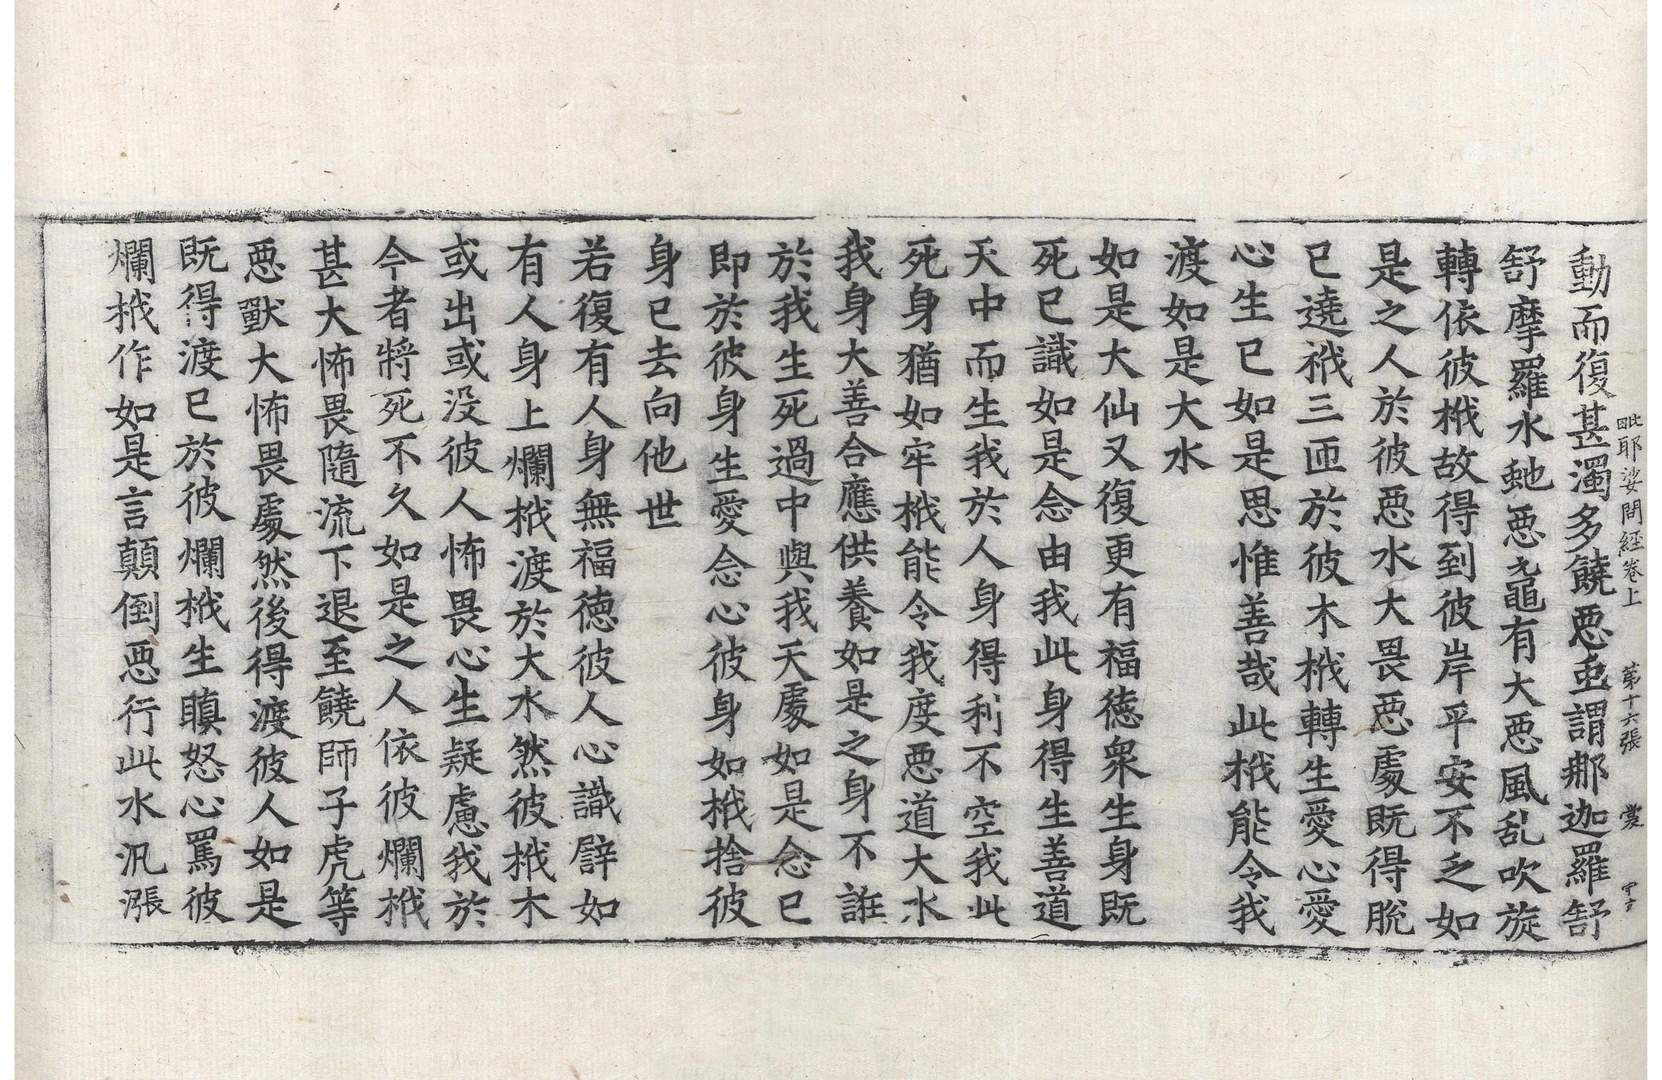 毗耶娑問經卷上 第十六張 㱏
動而復甚濁多饒惡䖝謂那迦羅舒
舒摩羅水虵惡黿有大惡風乱吹旋
轉依彼栰故得到彼岸平安不乏如
是之人於彼惡水大畏惡處既得脫
已遶栰三匝於彼木栰轉生愛心愛
心生已如是思惟善哉此栰能令我
渡如是大水
如是大仙又復更有福德衆生身既
死已識如是念由我此身得生善道
天中而生我於人身得利不空我此
死身猶如牢栰能令我度惡道大水
我身大善合應供養如是之身不誑
於我生死過中與我天處如是念已
即於彼身生愛念心彼身如栰捨彼
身已去向他世
若復有人身無福德彼人心識譬如
有人身上爛栰渡於大水然彼栰木
或出或没彼人怖畏心生疑慮我於
今者將死不久如是之人依彼爛栰
甚大怖畏隨流下退至饒師子虎等
惡獸大怖畏處然後得渡彼人如是
既得渡已於彼爛栰生瞋怒心罵彼
爛栰作如是言顛倒惡行此水汎漲